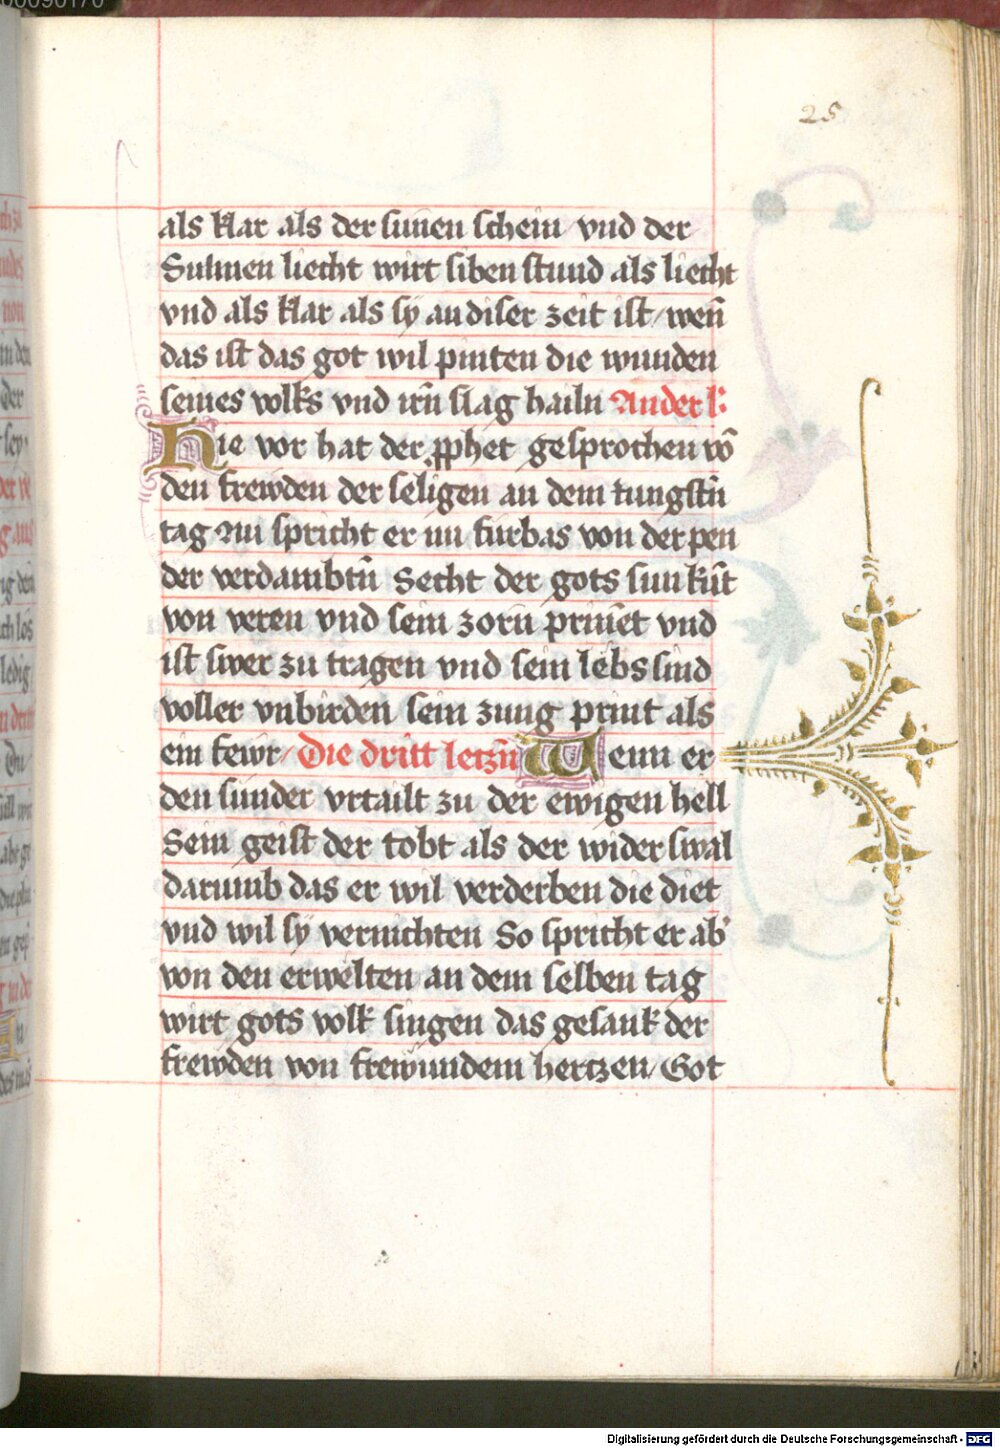 25
als klar als der sunen schein vnd der
Sunnen liecht wirt siben stund als liecht
vnd als klar als sy an diser zeit ist / wen̄
das ist das got wil pinten die wunden
seines volks vnd irn̄ slag hailn Ander l:
Hie vor hat der pphet gesprochen vō
den frewden der seligen an dem iungstn̄
tag Nu spricht er nu furbas von der pen
der verdambtn̄ Secht der gots sun kūt
von veren vnd sein zorn prin̄et vnd
ist swer zu tragen vnd sein lebs sind
voller vnbirden sein zung print als
ein fewr / Die dritt letzn̄ Wenn er
den sunder vrtailt zu der ewigen hell
Sein geist der tobt als der wider swal
darumb das er wil verderben die diet
vnd wil sy vernichten So spricht er ab'
von den erwelten an dem selben tag
wirt gots volk singen das gesank der
frewden von frewundem hertzen / Got
Digitalisierung gefördert durch die Deutsche Forschungsgemeinschaft - DFG